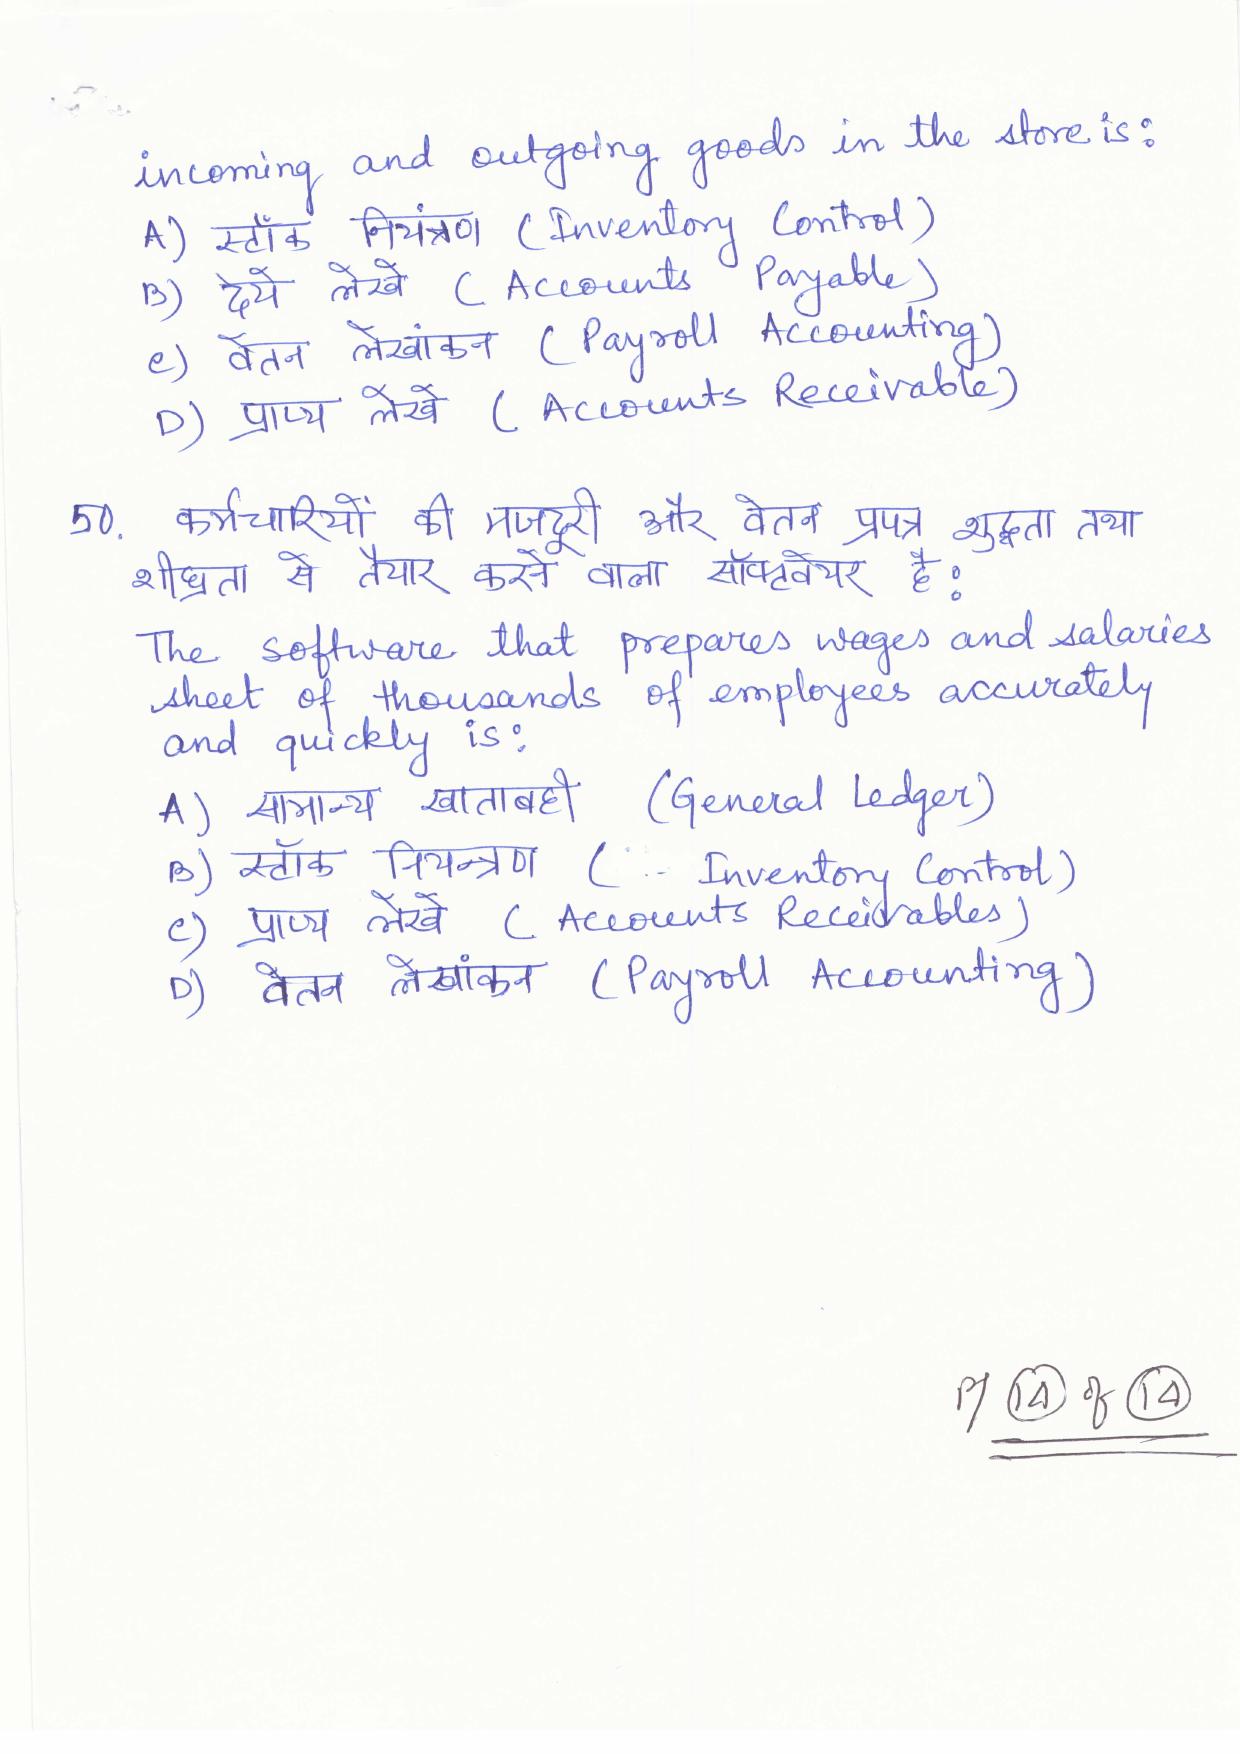 incoming and outgoing goods in the store is:
A) स्टॉक नियंत्रण (Inventory Control)
B) देये लेखे (Accounts Payable)
C) वेतन लेखांकन (Payroll Accounting)
D) प्राप्य लेखे (Accounts Receivable)
50. कर्मचारियों की मजदूरी और वेतन प्रपत्र शुद्धता तथा
शीघ्रता से तैयार करने वाला सॉफ्टवेयर है:
The software that prepares wages and salaries
sheet of thousands of employees accurately
and quickly is:
A) सामान्य खाताबही (General Ledger)
B) स्टॉक नियन्त्रण ( Inventory Control)
C) प्राप्य लेखे (Accounts Receivables)
D) वेतन लेखांकन (Payroll Accounting)
P/ 14 of 14